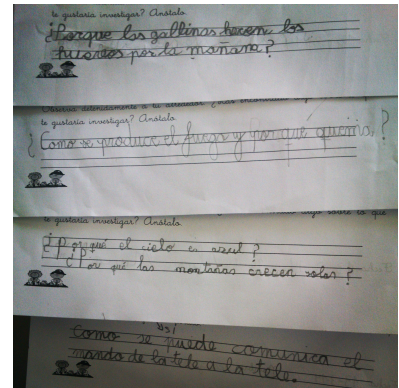 te gustaría investigar? Anótalo.
¿Porque las gallinas hacen los
huevos por la mañana?
Observa detenidamente a tu alrededor
te gustaría investigar? Anótalo.
¿Como se produce el fuego y porqué quema?
te gustaría investigar? Anótalo. sobre lo que
¿Por qué el cielo es azul?
¿Por qué las montañas crecen solas?
Como se puede comunica el
mando de la tele a la tele.